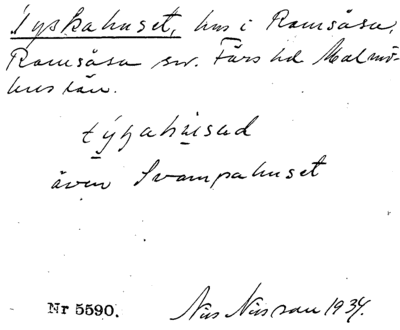 Tyskahuset, hus i Ramsåsa,
Ramsåsa sn. Färs hd Malmö-
hus län.
týskahúsad
även Svampahuset
Nr 5590. Nils Nilsson 1934.